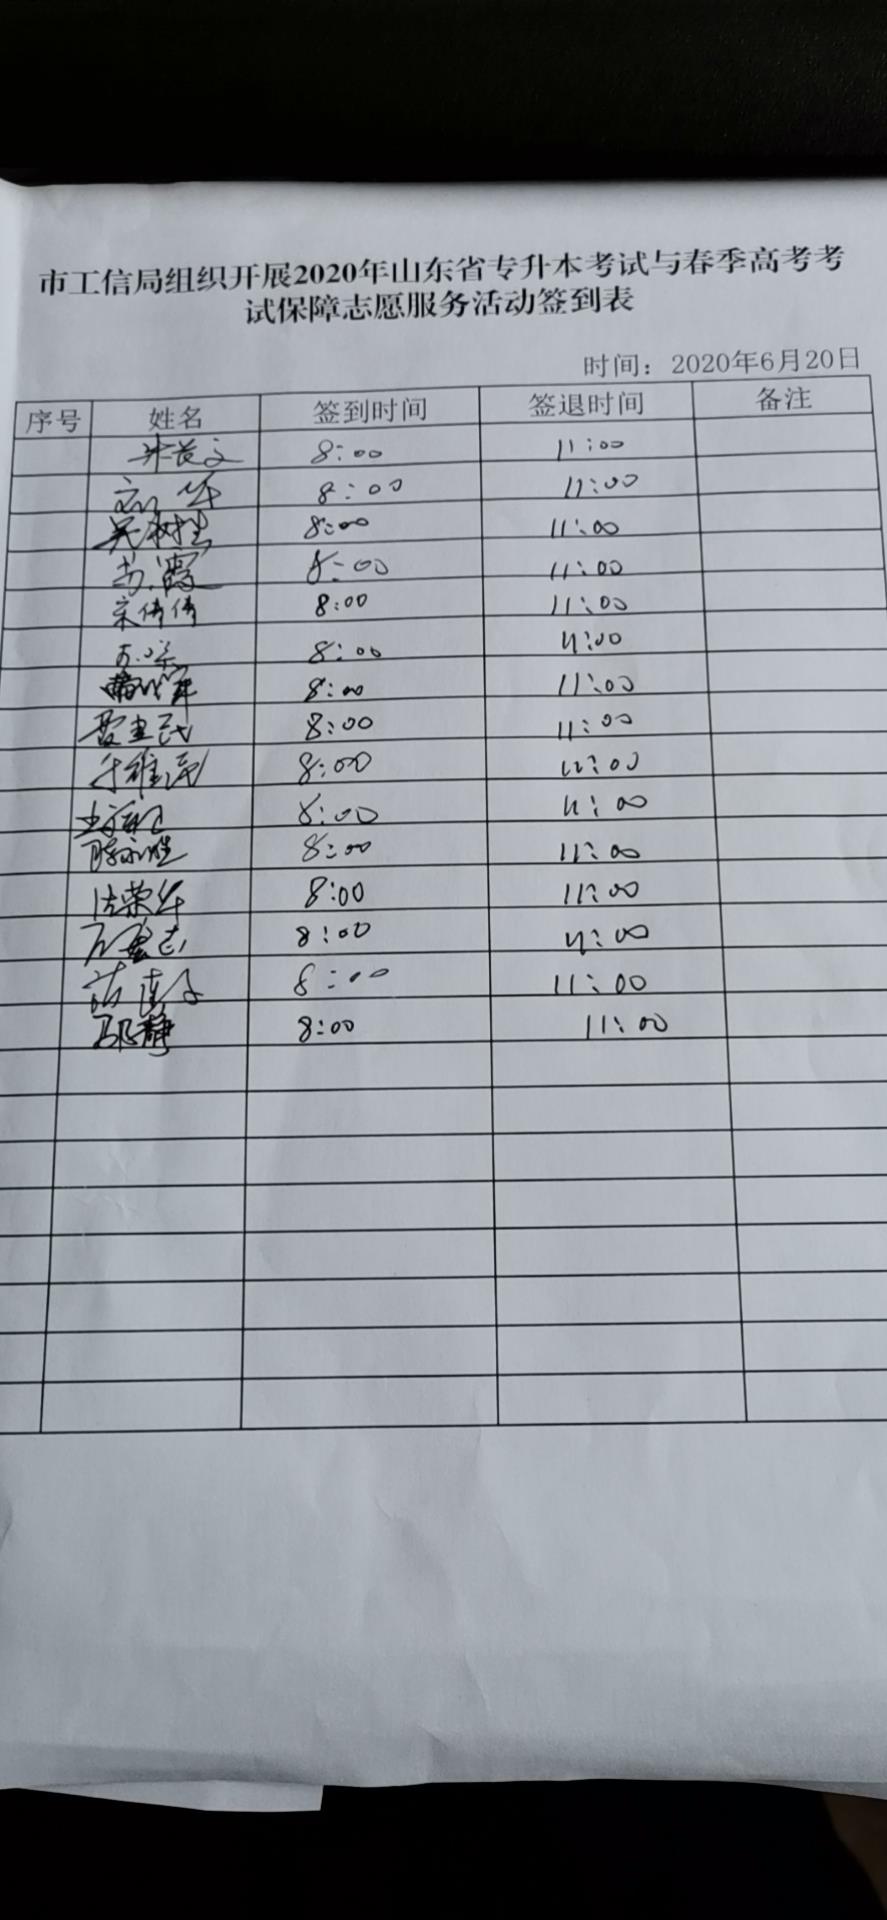 市工信局组织开展2020年山东省专升本考试与春季高考考
试保障志愿服务活动签到表
时间：2020年6月20日
序号 姓名 签到时间 签退时间 备注
8:00 11:00
刘华 8:00 11:00
吴树生 8:00 11:00
8:00 11:00
宋倩倩 8:00 11:00
8:00 11:00
8:00 11:00
8:00 11:00
于维民 8:00 11:00
8:00 11:00
陈永胜 8:00 11:00
8:00 11:00
8:00 11:00
8:00 11:00
邹静 8:00 11:00